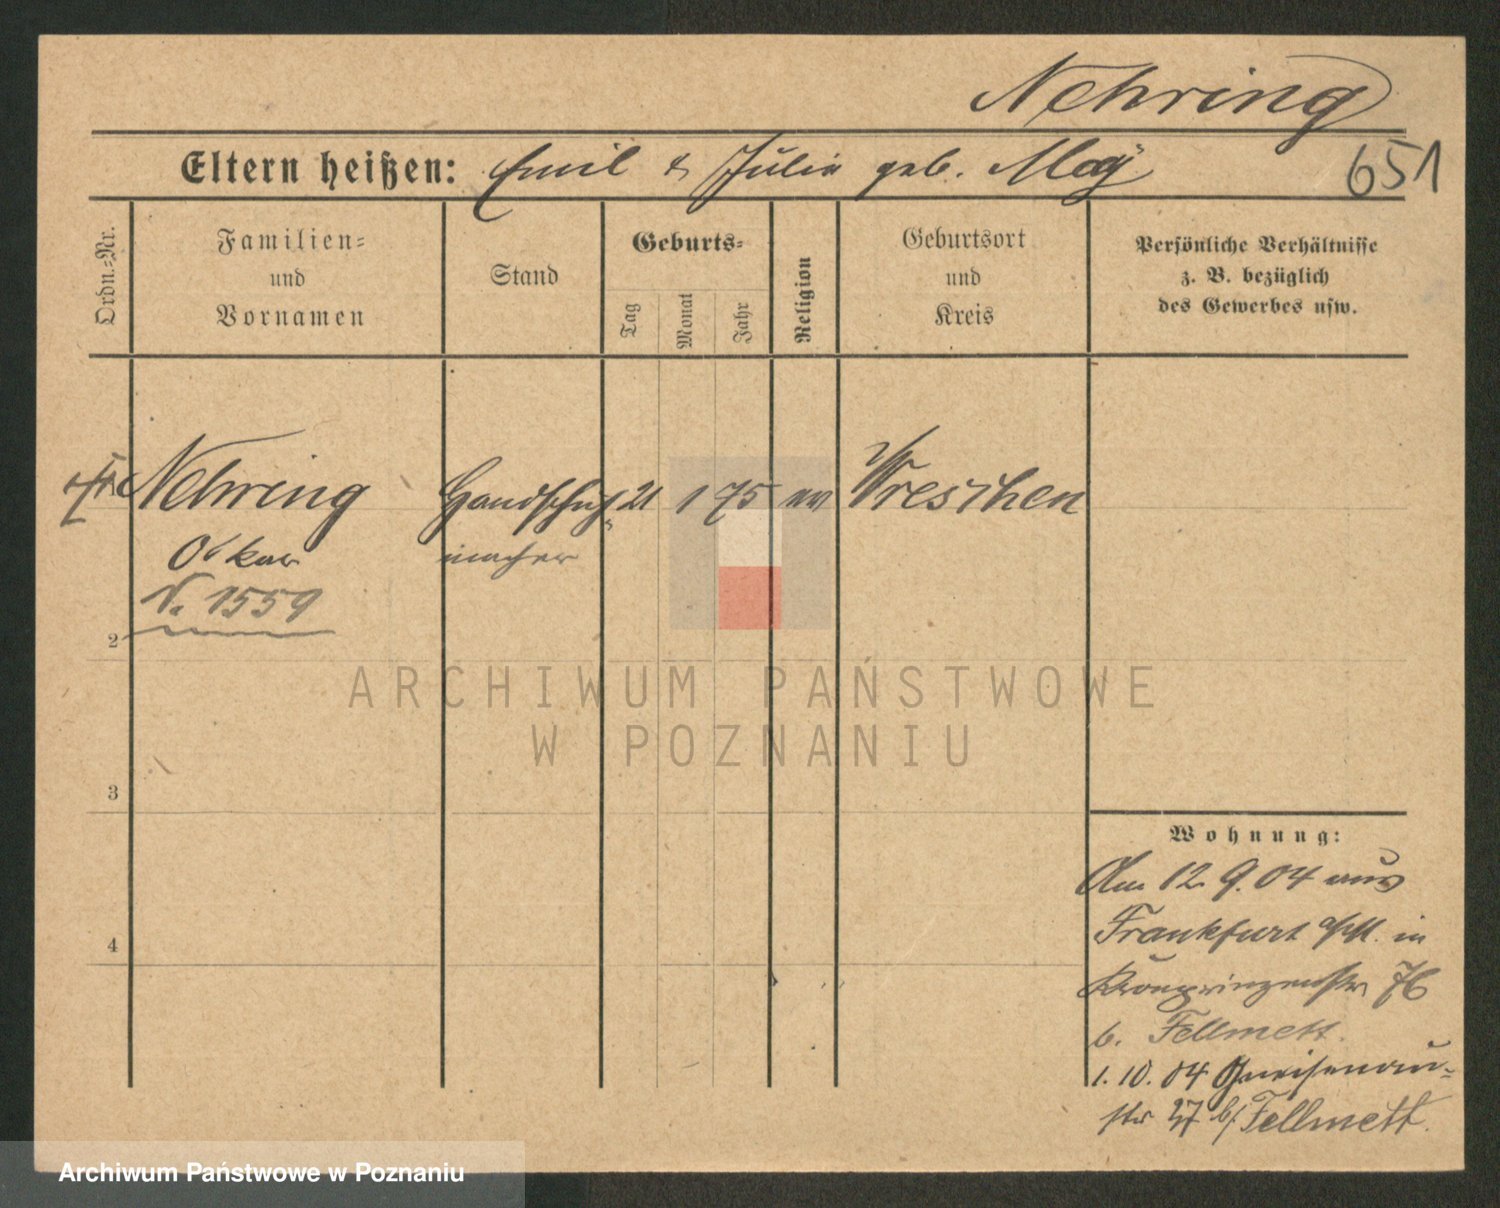 Nehring
Eltern heißen: Emil & Julia geb. May
651
Ordn.-Nr.
Familien-
und
Vornamen
Stand
Geburts-
Tag
Monat
Jahr
Religion
Geburtsort
und
Kreis
Persönliche Verhältnisse
z. B. bezüglich
des Gewerbes usw.
Nehring Handschuh- 21 1 75 ev Wreschen
Oskar macher
V. 1559
2
3
4
Wohnung:
Am 12. 9. 04 aus
Frankfurt a/M. in
Kronprinzenstr 76
b. Fellmett.
1. 10. 04 Gneisenau-
str 27 b/ Fellmett.
ARCHIWUM PAŃSTWOWE
W POZNANIU
Archiwum Państwowe w Poznaniu